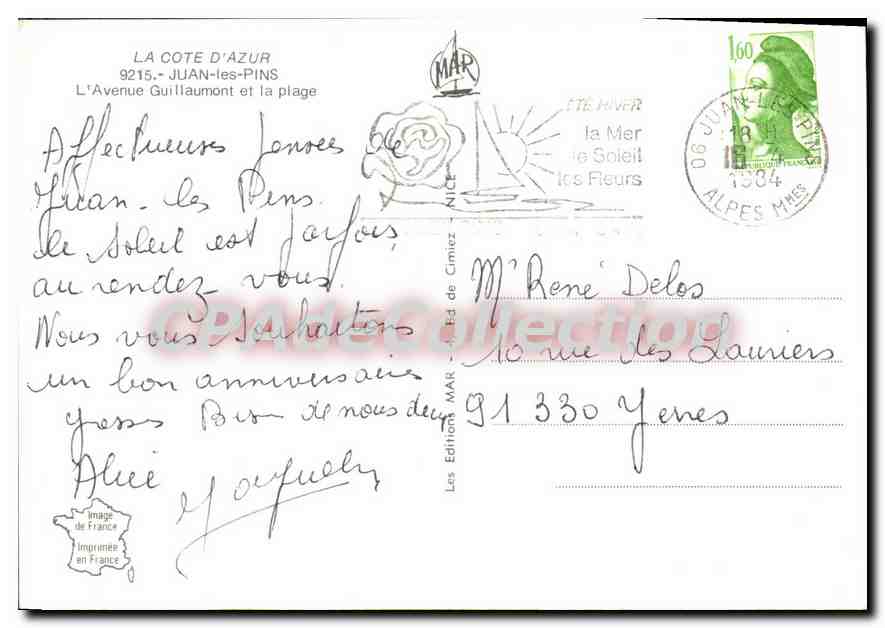 LA COTE D'AZUR
9215.- JUAN-les-PINS
L'Avenue Guillaumont et la plage
MAR
ÉTÉ HIVER
la Mer
le Soleil
les Fleurs
1,60
REPUBLIQUE FRANÇAISE
06 JUAN-LES-PINS
18 H
16 4
1984
ALPES MMES
Affectueuses pensées de
Juan-les Pins.
Le Soleil est parfois,
au rendez vous.
Nous vous souhaitons
un bon anniversaire
grosses Bises de nous deux
Alice
Image
de France
Imprimée
en France
Les Editions MAR - Bd de Cimiez - NICE
Mr René Delos
10 rue des Lauriers
91 330 Yerres
CPAdeCollection